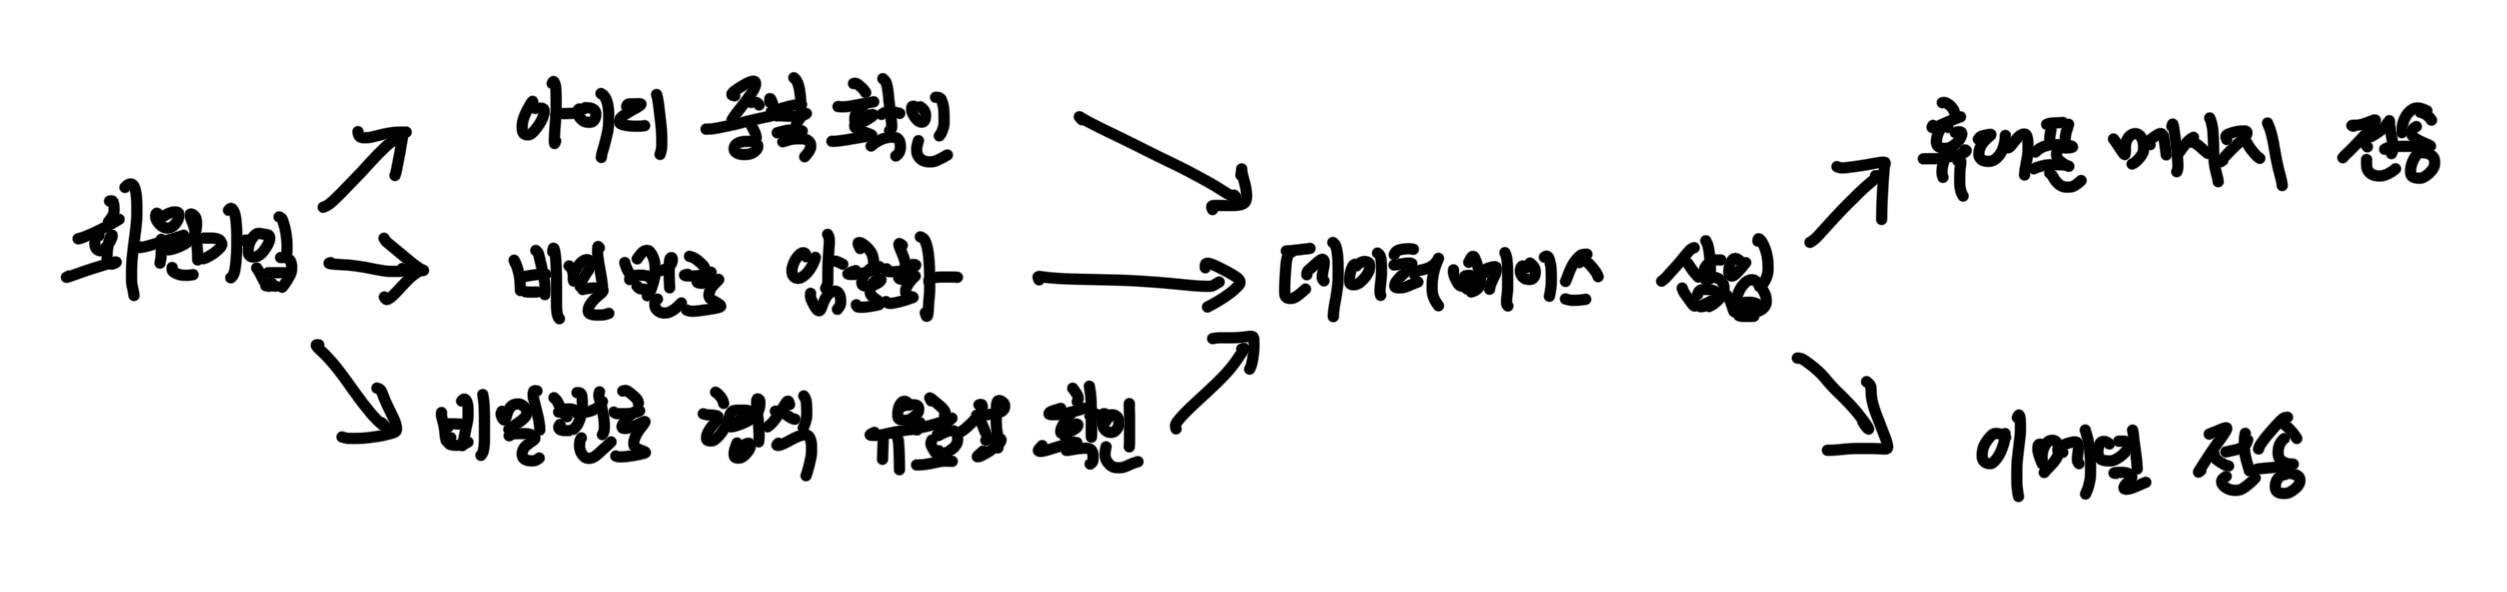 회원가입
아이디 중복 확인
비밀번호 암호화
비밀번호 형식 유효성 확인
데이터베이스 삽입
휴대폰 메시지 전송
이메일 전송